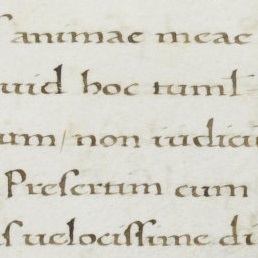 animae meae
hoc tuml
non iudici
Presertim cum
uelocissime di